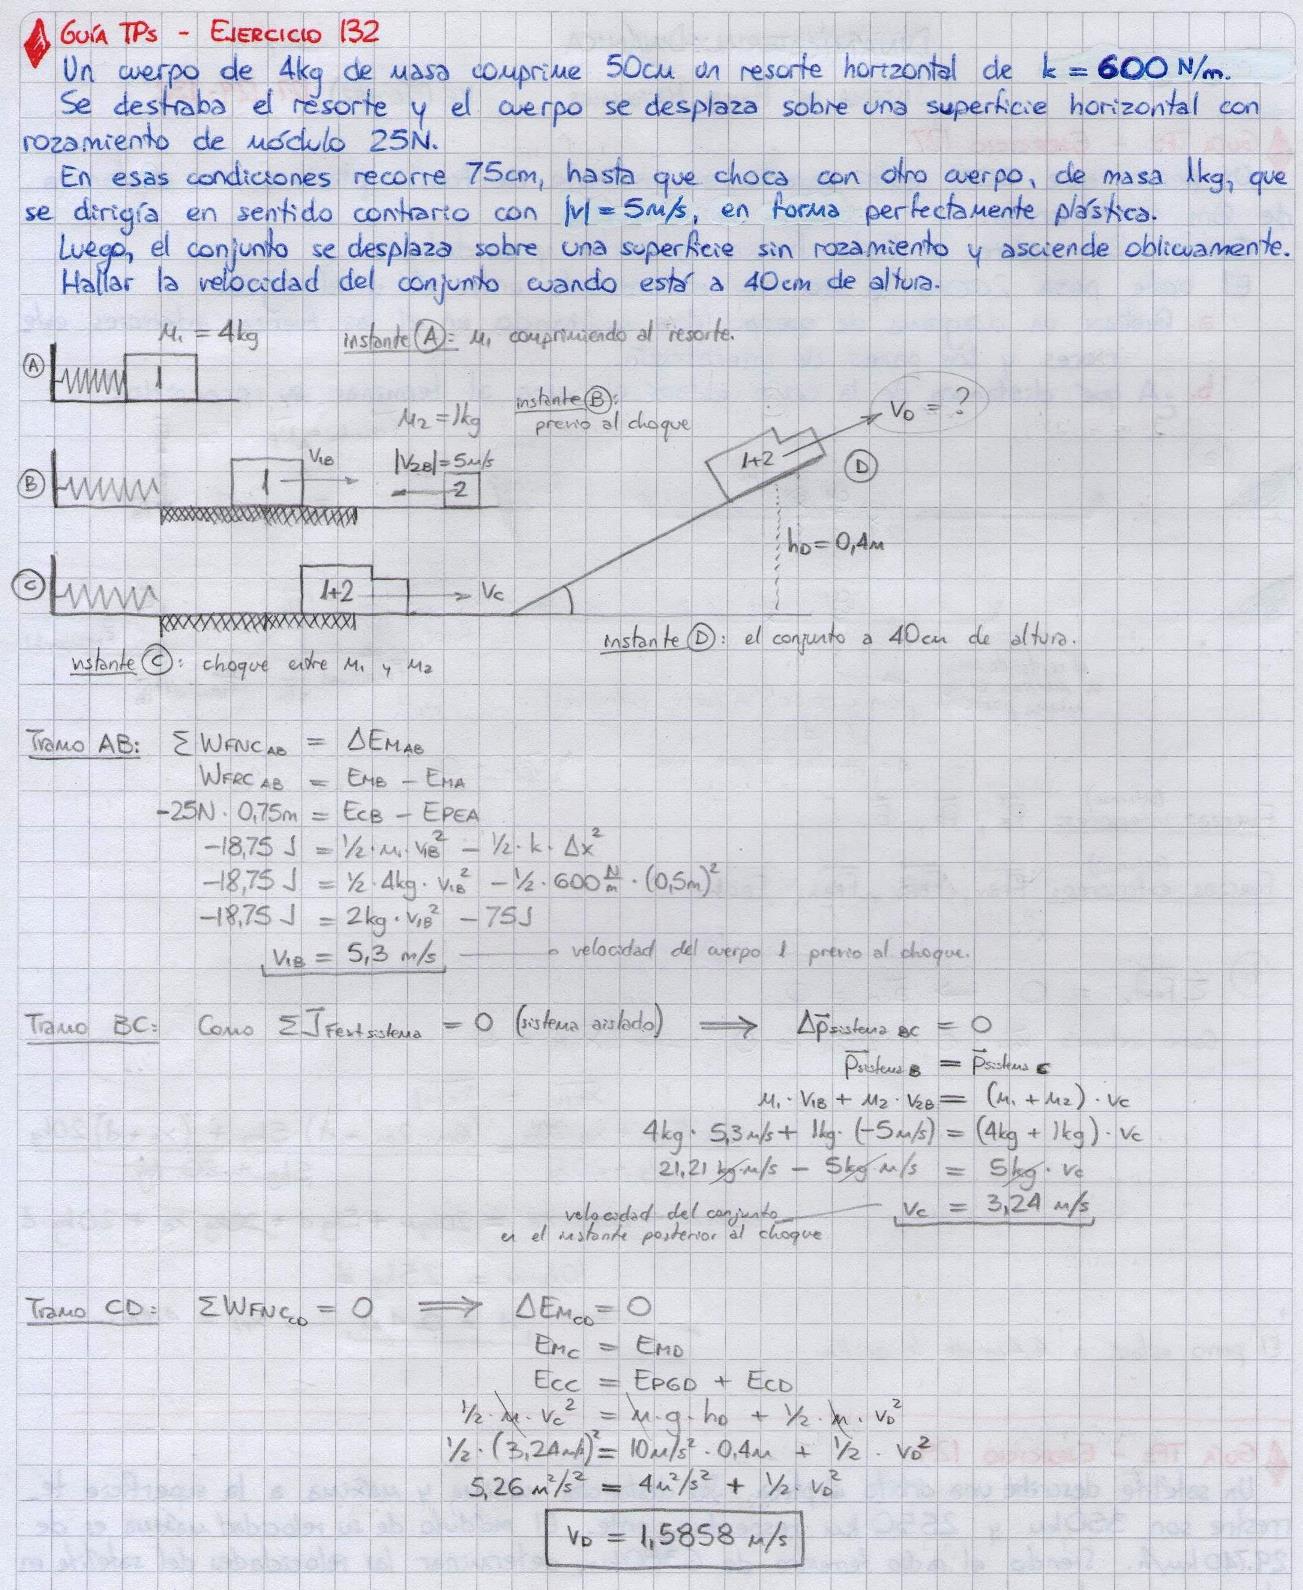 GUÍA TPs - EJERCICIO 132
Un cuerpo de 4kg de masa comprime 50cm un resorte horizontal de k = 600 N/m.
Se destraba el resorte y el cuerpo se desplaza sobre una superficie horizontal con
rozamiento de módulo 25N.
En esas condiciones recorre 75cm, hasta que choca con otro cuerpo, de masa 1kg, que
se dirigía en sentido contrario con |v| = 5m/s, en forma perfectamente plástica.
Luego, el conjunto se desplaza sobre una superficie sin rozamiento y asciende oblicuamente.
Hallar la velocidad del conjunto cuando está a 40cm de altura.
M1 = 4kg
instante (A): M1 comprimiendo al resorte.
(A)
1
M2 = 1kg
instante (B):
previo al choque
VD = ?
1+2
(D)
(B)
1
V1B
|V2B| = 5m/s
2
hD = 0,4m
(C)
1+2
VC
instante (D): el conjunto a 40cm de altura.
instante (C): choque entre M1 y M2
Tramo AB: Σ WFNC AB = ΔEM AB
WFRC AB = EMB - EMA
-25N · 0,75m = ECB - EPEA
-18,75 J = 1/2 · M1 · V1B² - 1/2 · k · Δx²
-18,75 J = 1/2 · 4kg · V1B² - 1/2 · 600 N/m · (0,5m)²
-18,75 J = 2kg · V1B² - 75J
V1B = 5,3 m/s velocidad del cuerpo 1 previo al choque.
Tramo BC: Como Σ J Fext sistema = 0 (sistema aislado) ⟹ Δp sistema BC = 0
p sistema B = p sistema C
M1 · V1B + M2 · V2B = (M1 + M2) · VC
4kg · 5,3m/s + 1kg · (-5m/s) = (4kg + 1kg) · VC
21,21 kg·m/s - 5kg·m/s = 5kg · VC
VC = 3,24 m/s
velocidad del conjunto
en el instante posterior al choque
Tramo CD: ΣWFNC CD = 0 ⟹ ΔEM CD = 0
EMC = EMD
ECC = EPGD + ECD
1/2 · M · VC² = M · g · hD + 1/2 · M · VD²
1/2 · (3,24m/s)² = 10m/s² · 0,4m + 1/2 · VD²
5,26 m²/s² = 4m²/s² + 1/2 · VD²
VD = 1,5858 m/s